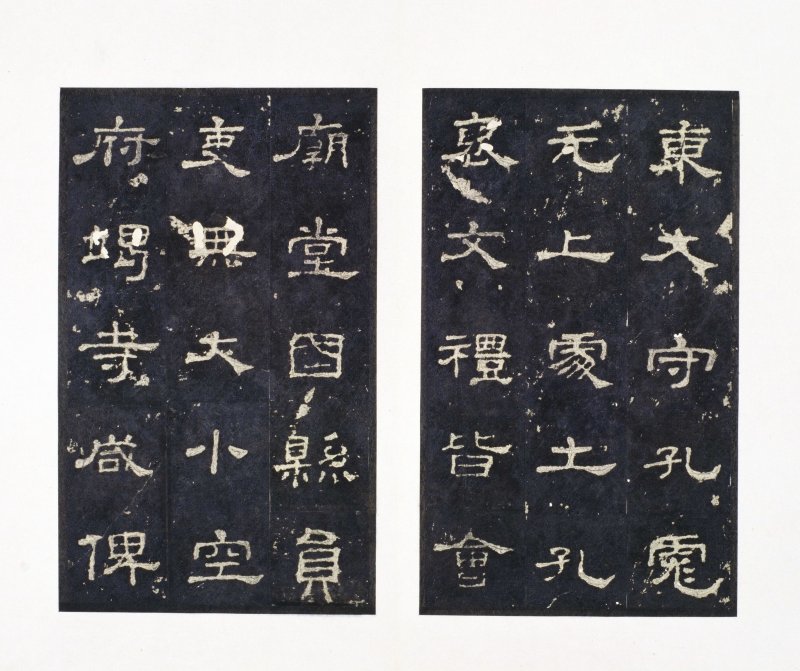 東大守孔彪
元上處土孔
褒文禮皆會
廟堂國縣員
吏無大小空
府竭寺咸俾